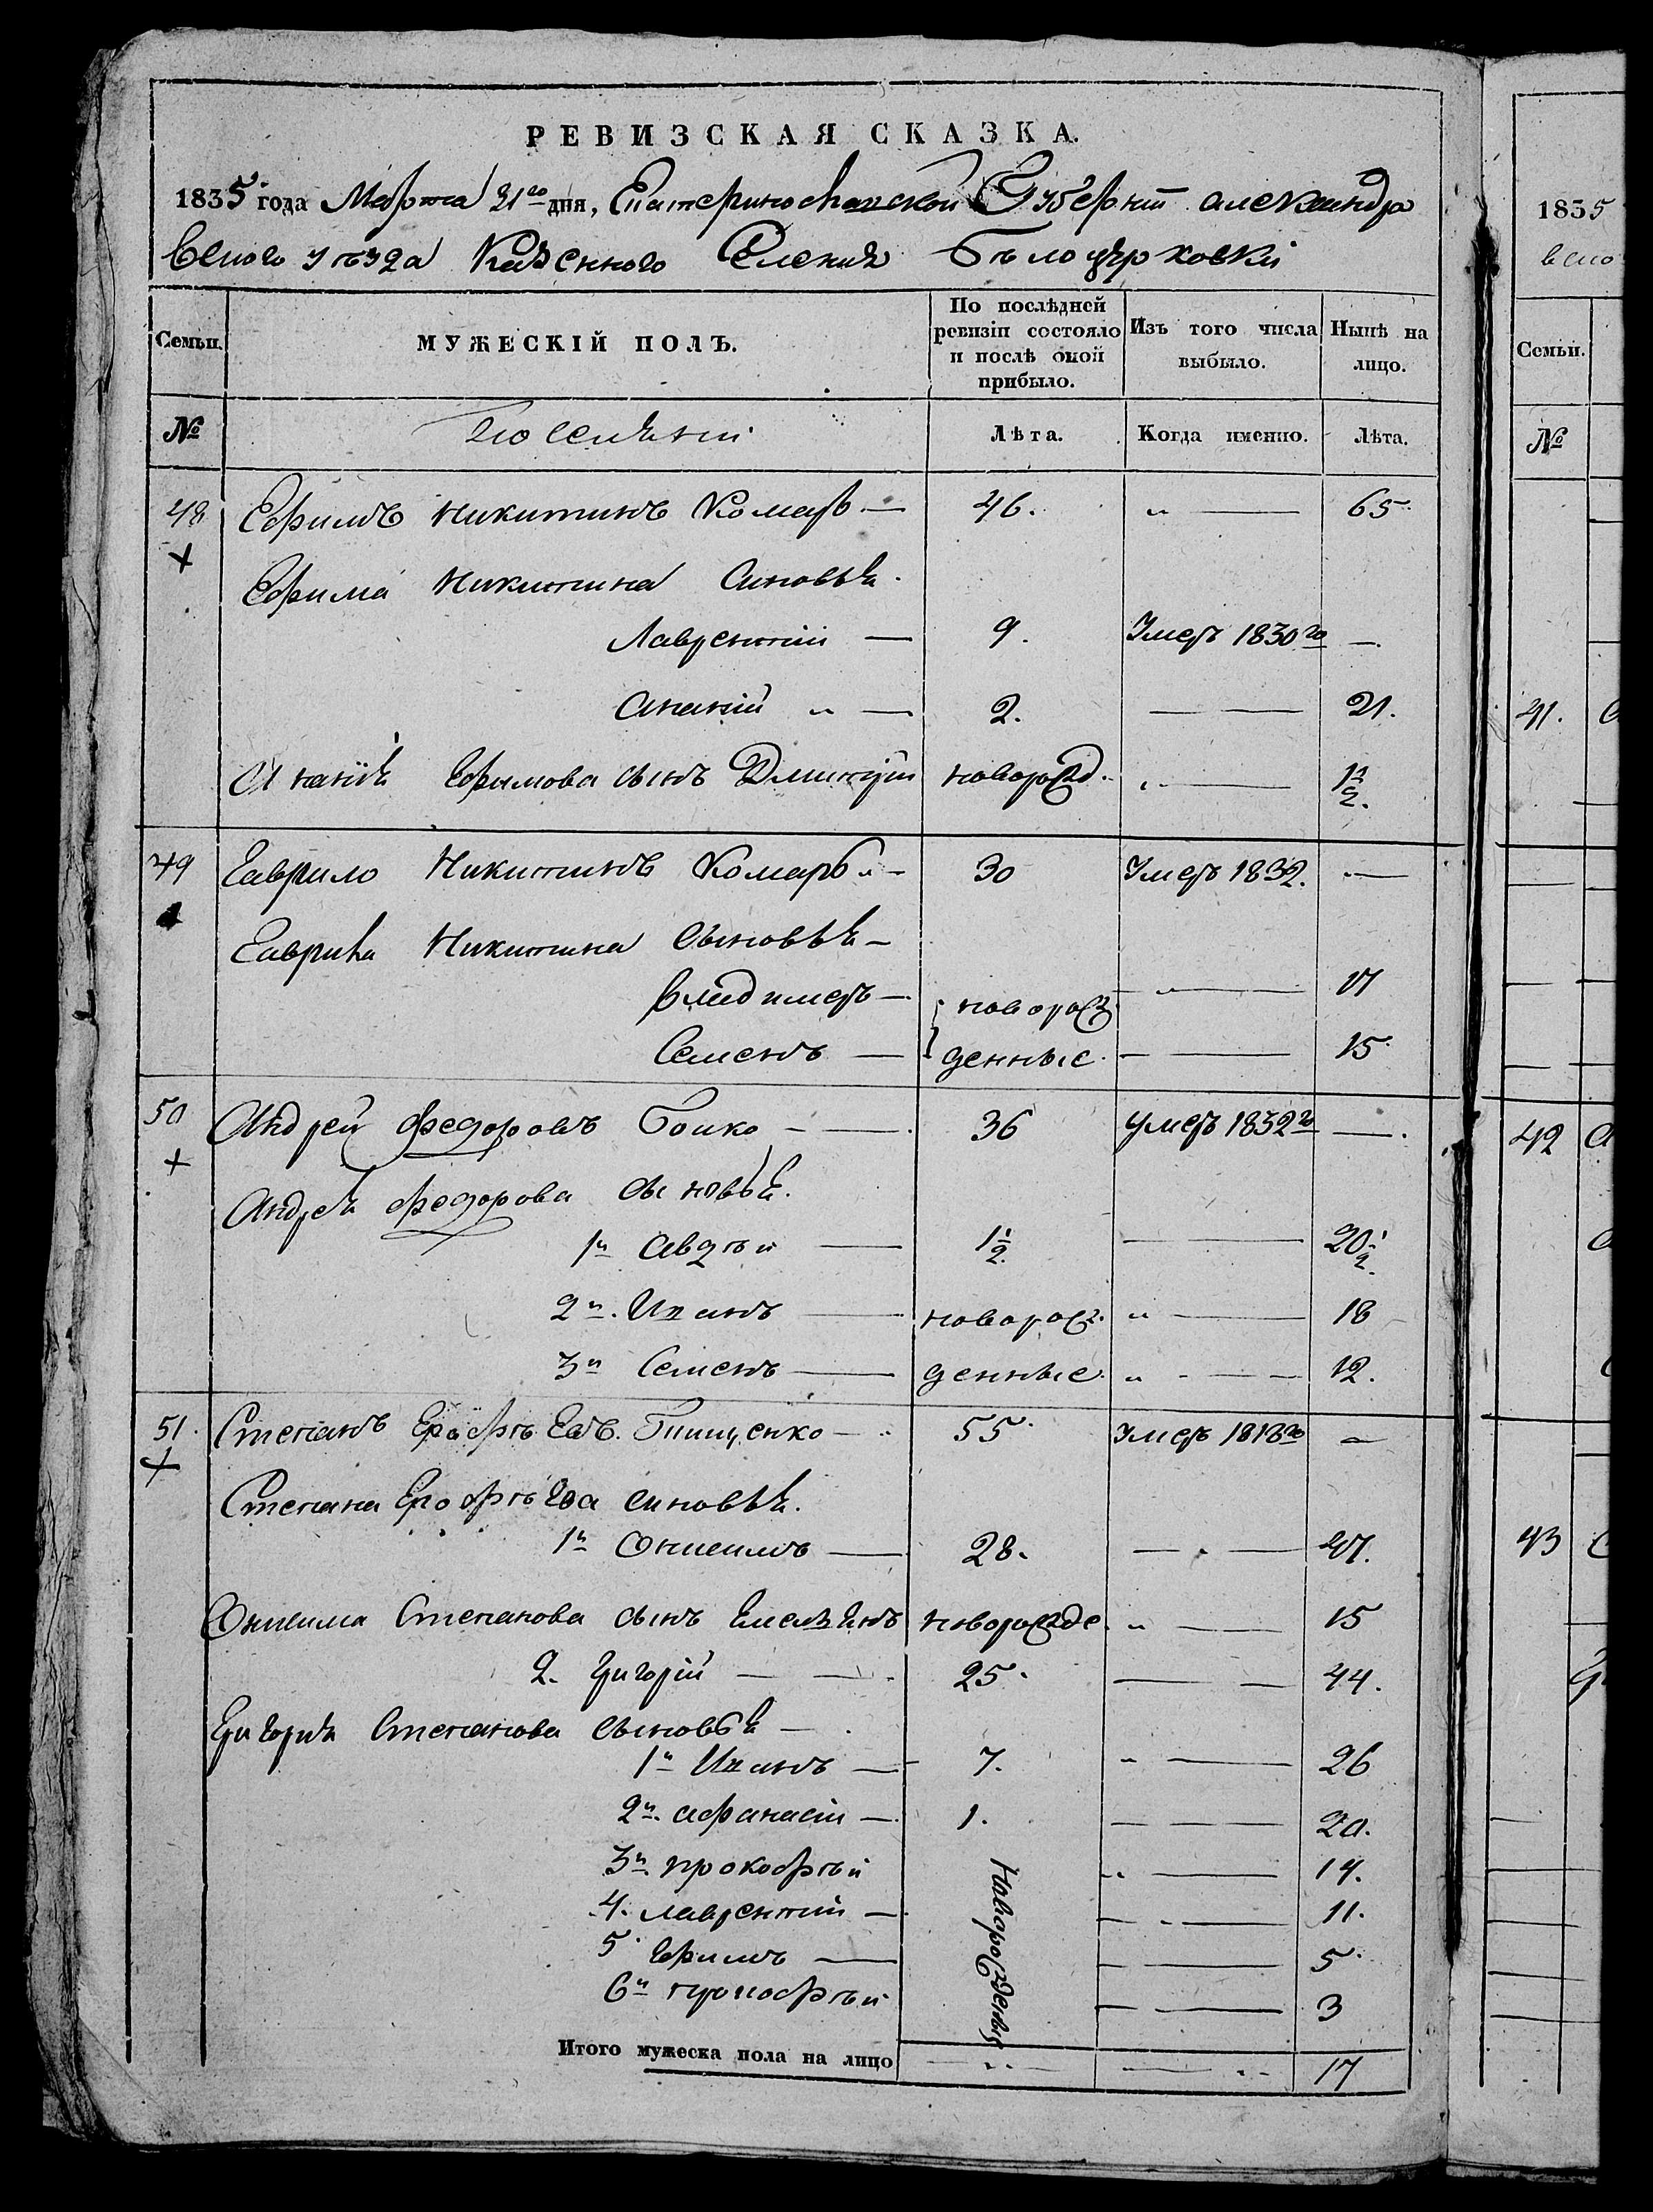 РЕВИЗСКАЯ СКАЗКА.
1835 года Марта 21го дня, Екатеринославской Губерніи александро
вского уѣзда Казенного Селенія Бѣлоцерковки
Семьи.
МУЖЕСКІЙ ПОЛЪ.
По послѣдней ревизіи состояло и послѣ оной прибыло.
Изъ того числа выбыло.
Нынѣ на лицо.
№
Лѣта. Когда именно. Лѣта.
48 Ефимъ Никитинъ Комаръ — 46. „ — 65.
Ефима Никитина Синовья.
Лаврентій — 9. Умеръ 1830го —.
Ананій „ — 2. — — 21.
Ананія Ефимова сынъ Дмитрій новорожд. „ — 1 1/2.
49 Гаврило Никитинъ Комаръ „ — 30 Умеръ 1832. —
Гаврила Никитина сыновья —
владимеръ — новорож — „ — 17
Семенъ — денные. — — 15.
50 Андрей Федоровъ Бойко — — 36 умеръ 1832го —.
Андрея федорова сыновья.
1й Авдѣй — 1 1/2. — — 20 1/2.
2й. Иванъ — новорож. „ — 18
3й Семенъ — денные. „ - — — 12.
51. Степанъ Ерофѣевъ. Тищенко — 55. Умеръ 1818го —
Степана Ерофѣева синовья.
1й Онисимъ — 28. — „ — 47.
Онисима Степанова сынъ Емельянъ новорожде. „ — 15
2. Григорій — — 25. — — 44.
Григорія Степанова сыновья —
1й Иванъ — 7. „ — 26
2й. афанасій — 1. — — — 20.
3й. прокофѣй „ — 14.
4. лаврентій — — „ — 11.
5. Ефимъ — — — 5.
6й прокофѣй — — 3
Новорожденые
Итого мужеска пола на лицо — „ — — „ - 17
1835
вско
Семьи.
№
41.
42
43